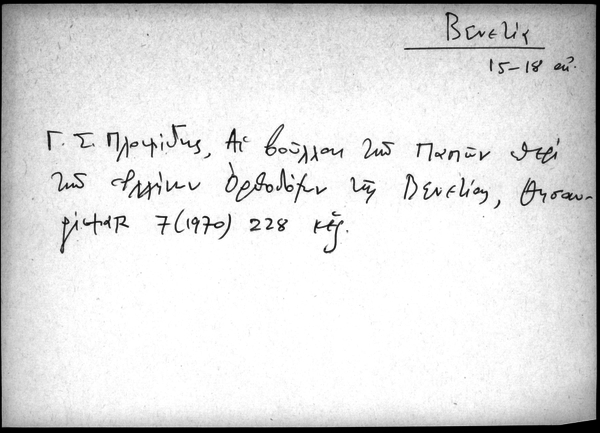 Βενετία
15-18 αἰ.
Γ. Σ. Πλουμίδης, Αἱ βοῦλλαι τῶν Παπῶν περὶ
τῶν Ἑλλήνων Ὀρθοδόξων τῆς Βενετίας, Θησαυ-
ρίσματα 7(1970) 228 κἑξ.